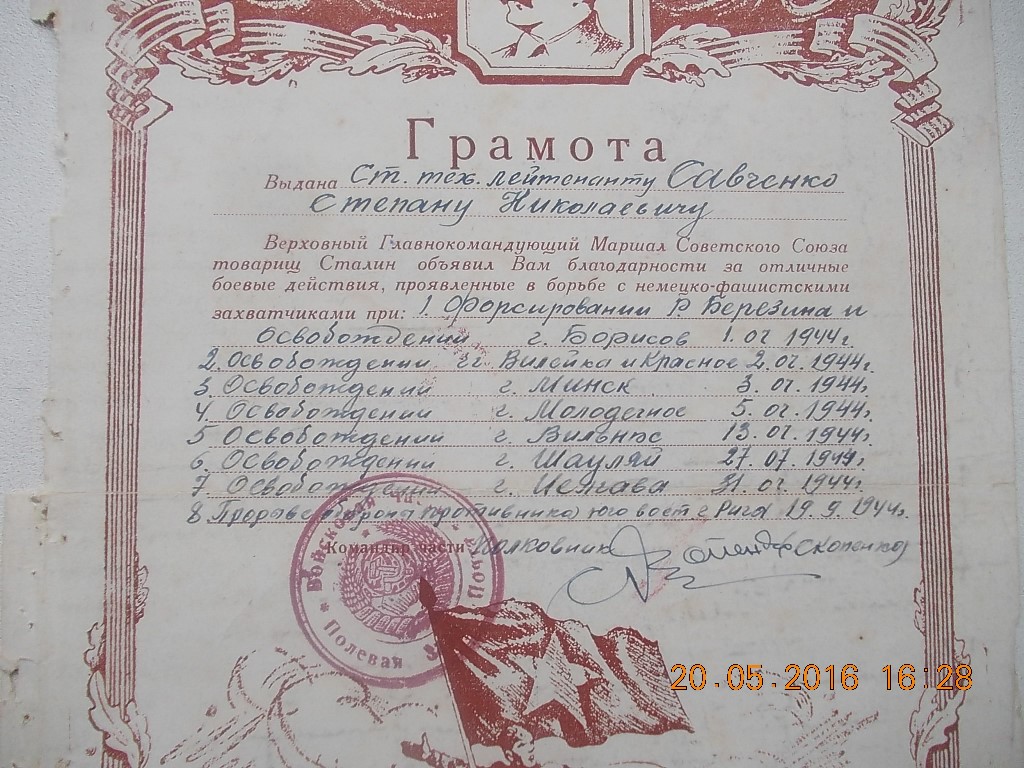 Грамота
Выдана Ст. тех. лейтенанту Савченко
Степану Николаевичу
Верховный Главнокомандующий Маршал Советского Союза
товарищ Сталин объявил Вам благодарности за отличные
боевые действия, проявленные в борьбе с немецко-фашистскими
захватчиками при: 1. Форсировании р. Березина и
Освобождений г. Борисов 1.07 1944г
2. Освобождений г.г. Вилейка и Красное 2.07.1944г
3. Освобождений г. Минск 3.07.1944г
4. Освобождений г. Молодечное 5.07.1944г
5 Освобождений г. Вильнюс 13.07.1944г.
6. Освобождений г. Шауляй 27.07.1944г
7 Освобождений г. Иелгава 31.07.1944г
8 Прорыве противника юго вост г Рига 19.9.1944г.
Командир части Полковник Скопенко
Войсковая часть Полевая Почта
20.05.2016 16:28